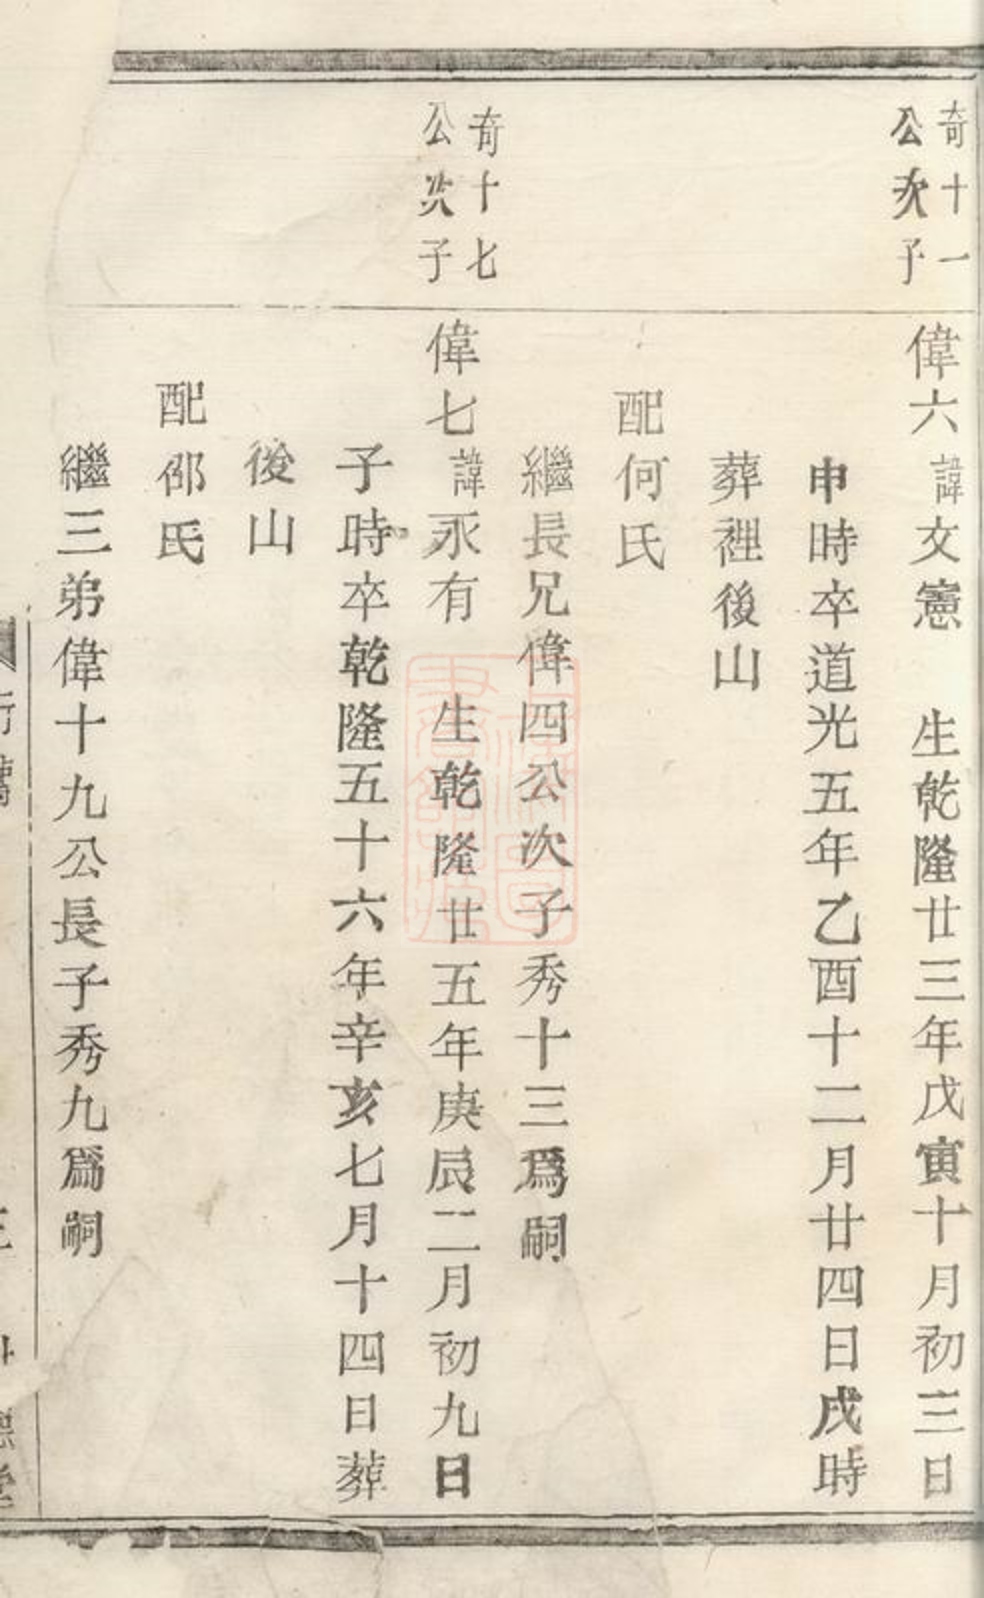 奇十一
公次子
偉六 諱文憲 生乾隆廿三年戊寅十月初三日
申時卒道光五年乙酉十二月廿四日戌時
葬裡後山
配何氏
繼長兄偉四公次子秀十三爲嗣
奇十七
公次子
偉七 諱永有 生乾隆廿五年庚辰二月初九日
子時卒乾隆五十六年辛亥七月十四日葬
後山
配邵氏
繼三弟偉十九公長子秀九爲嗣